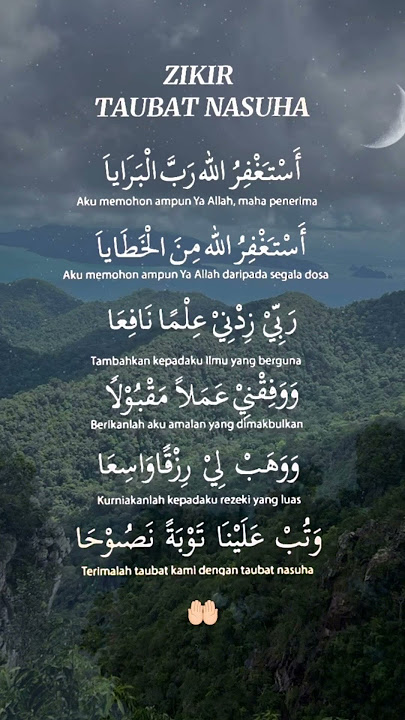 ZIKIR
TAUBAT NASUHA
أَسْتَغْفِرُ الله رَبَّ الْبَرَاياَ
Aku memohon ampun Ya Allah, maha penerima
أَسْتَغْفِرُ الله مِنَ الْخَطَاياَ
Aku memohon ampun Ya Allah daripada segala dosa
رَبِّيْ زِدْنِيْ عِلْمًا نَافِعَا
Tambahkan kepadaku ilmu yang berguna
وَوَفِقْنِيْ عَمَلاً مَقْبُوْلًا
Berikanlah aku amalan yang dimakbulkan
وَوَهَبْ لِيْ رِزْقًاوَاسِعَا
Kurniakanlah kepadaku rezeki yang luas
وَتُبْ عَلَيْنَا تَوْبَةً نَصُوْحَا
Terimalah taubat kami dengan taubat nasuha